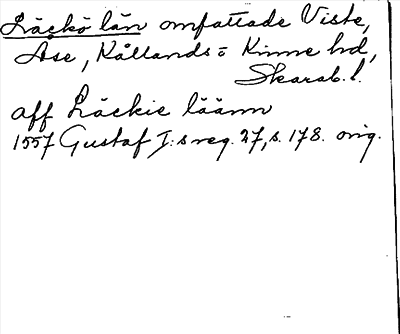 Läckö län omfattade Viste,
Åse, Kållands o Kinne hd,
Skarab. l.
aff Läckie läänn
1557 Gustaf I:s reg. 27, s. 178. orig.